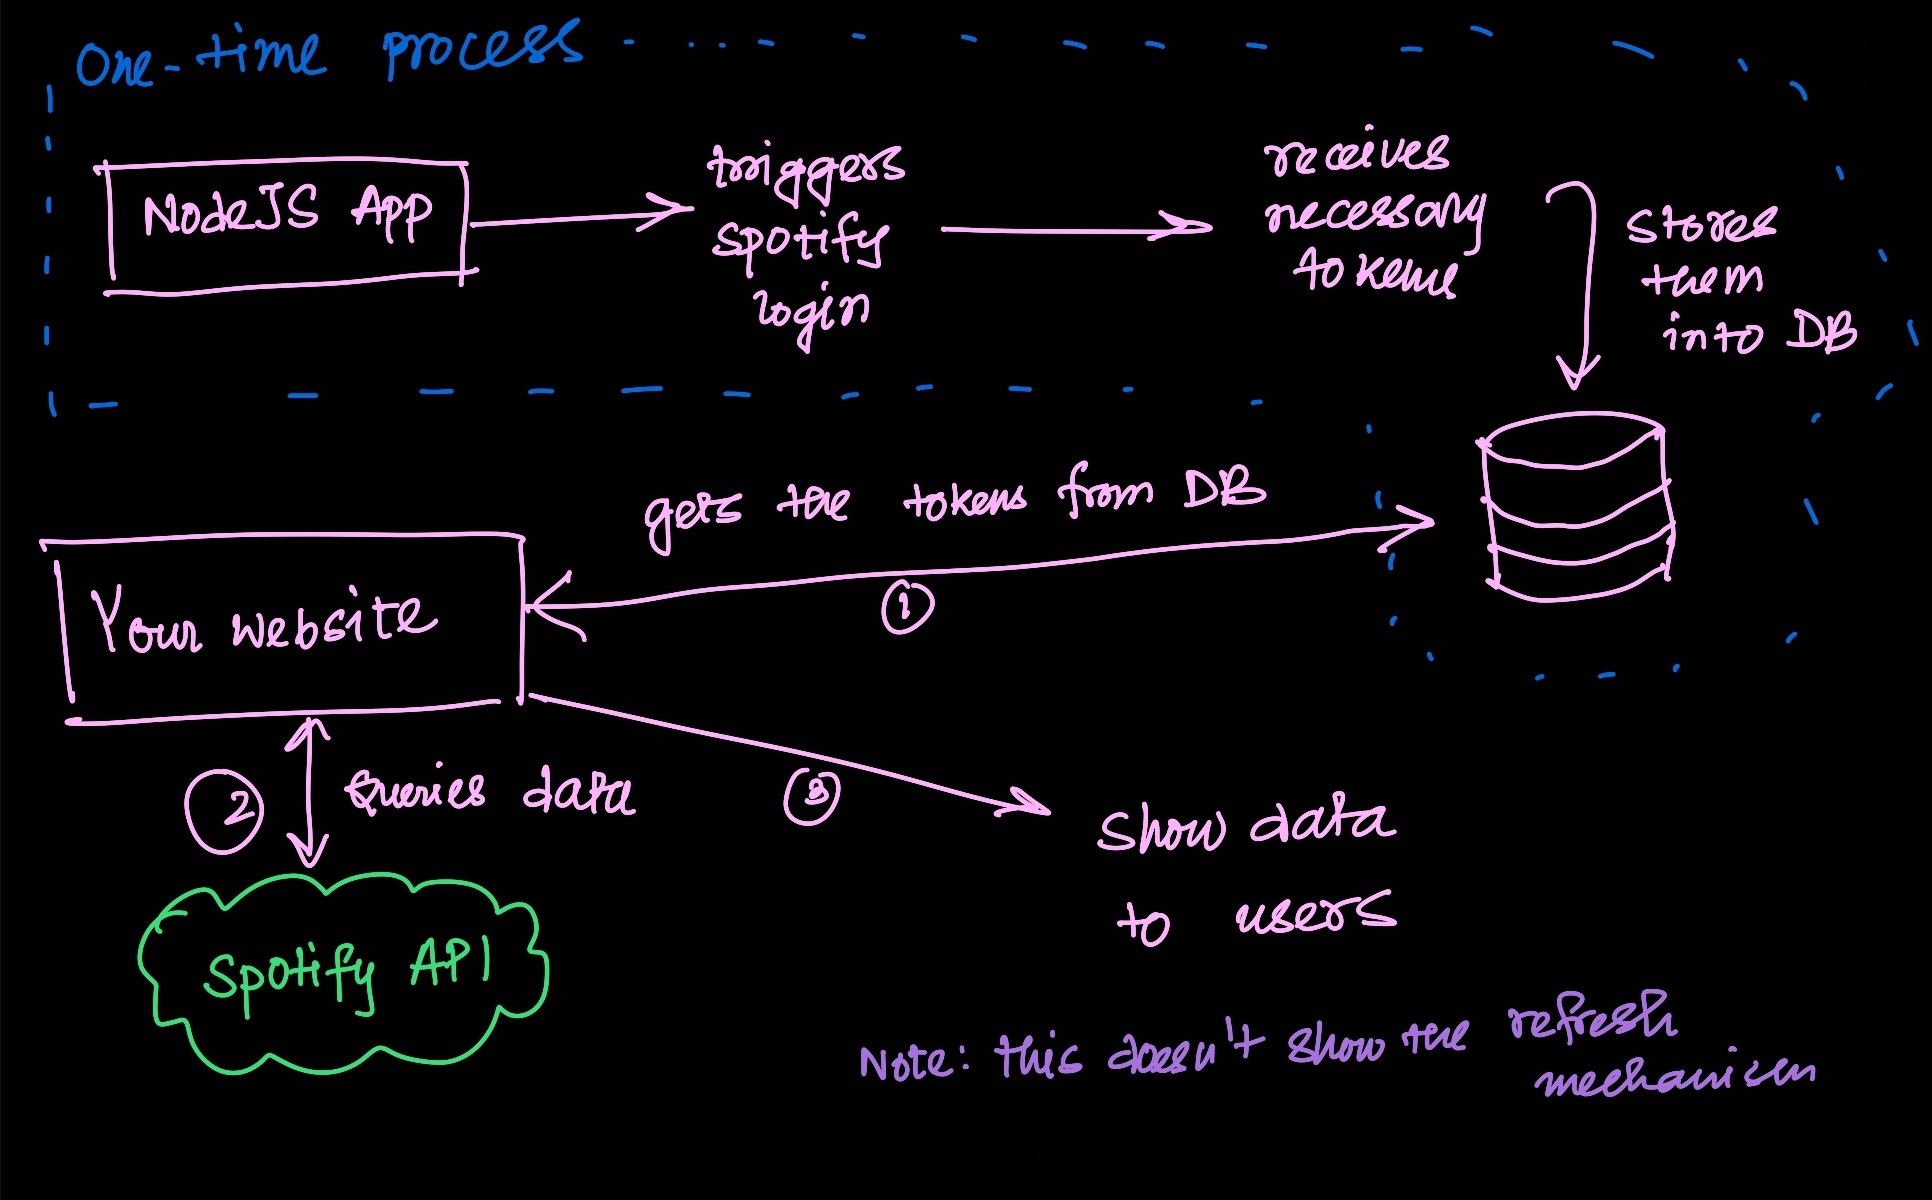 One-time process
NodeJS App
triggers
spotify
login
receives
necessary
tokens
stores
them
into DB
gets the tokens from DB
1
Your website
2
Queries data
3
show data
to users
Spotify API
Note: this doesn't show the refresh
mechanism